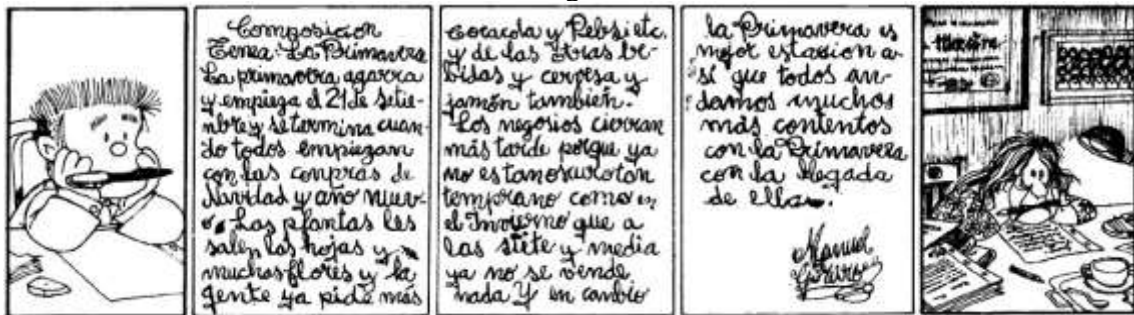 Composicion
Temea: La Primavera
La primavera agarra
y empieza el 21 de setie-
mbre y se termina cuan-
do todos empiezan
con las conpras de
Navidad y año nuev-
o. Las plantas les
salen las hojas y
muchas flores y la
gente ya pide más
cocacola y Pebsi etc.
y de las otras be-
bidas y cervesa y
jamón también.
Los negosios cierran
más tarde porgue ya
no es tan oscuro tan
temprano como en
el Invierno que a
las siete y media
ya no se vende
nada Y en canbio
la Primavera es
mejor estasion a-
sí que todos an-
damos muchos
más contentos
con la Primavera
con la llegada
de ella.
Manuel
Maestra